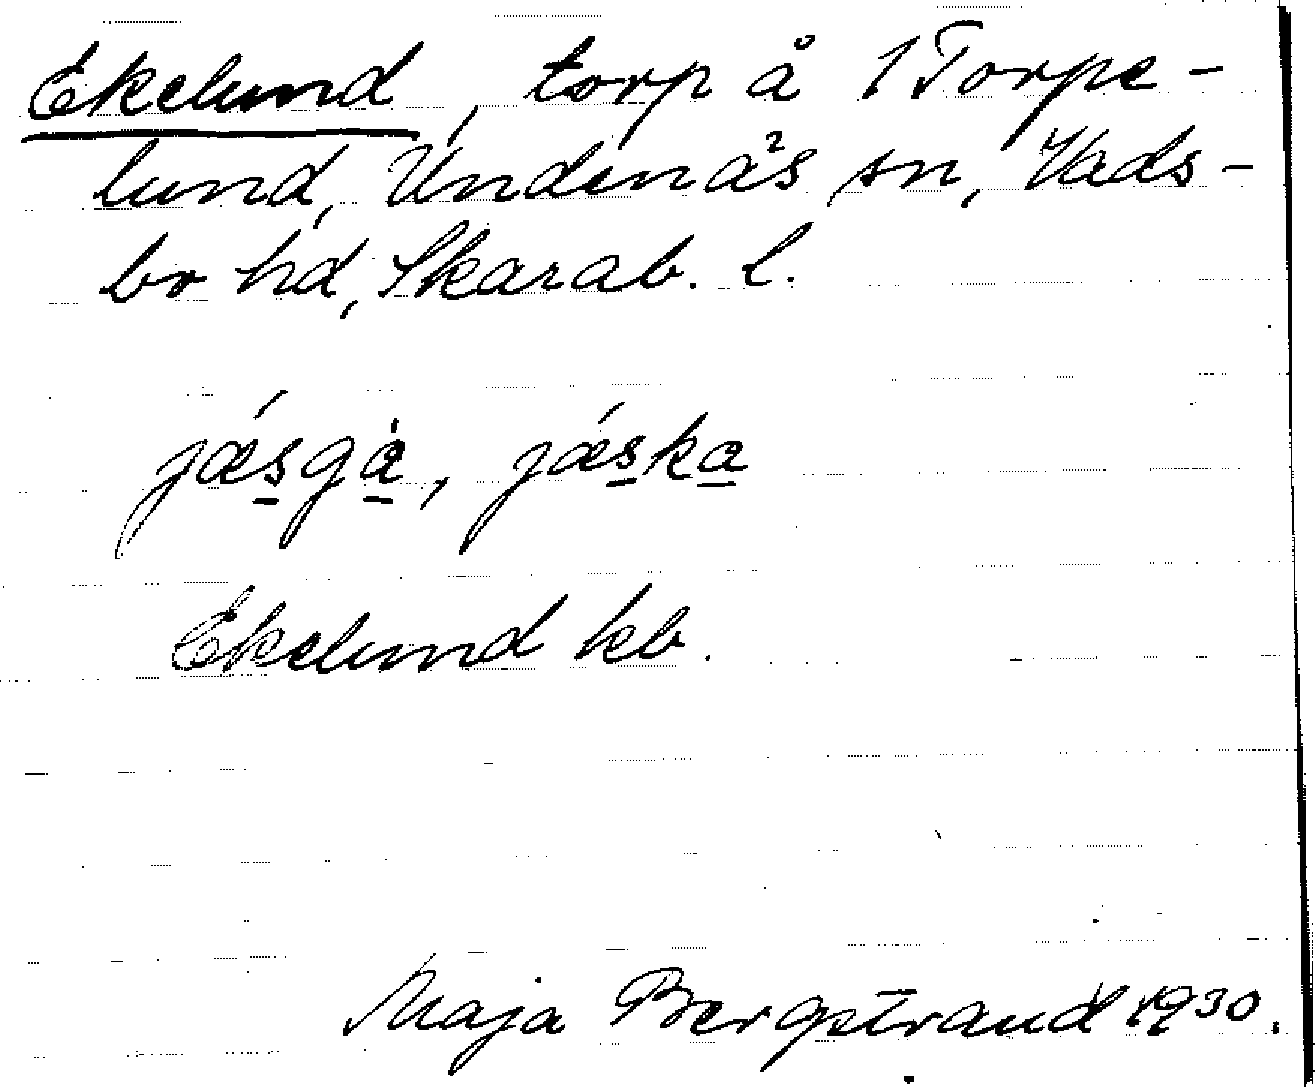 Ekelund, torp å 1 Torpe-
lund, Undenäs sn, Vads-
bo hd, Skarab. l.
jǽsgà, jǽska
Ekelund kb.
Maja Bergstrand 1930.